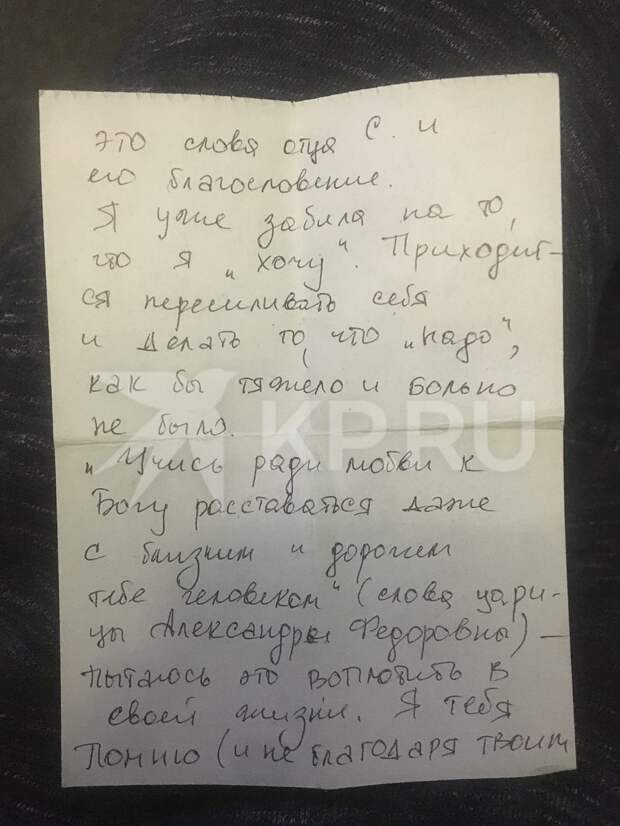 это слова отца С. и
его благословение.
Я уже забила на то,
что я „хочу“. Приходит-
ся пересиливать себя
и делать то, что „надо“,
как бы тяжело и больно
не было.
KP.RU
„Учись ради любви к
Богу расставаться даже
с близким и дорогим
тебе человеком“ (слова цари-
цы Александры Федоровны) –
пытаюсь это воплотить в
своей жизни. Я тебя
помню (и не благодаря твоим